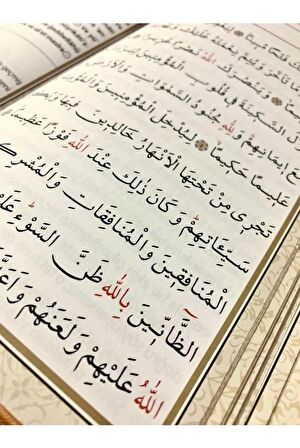 مَا تَأَخَّرَ وَيُتِمَّ نِعْمَتَهُ عَلَيْكَ
وَيَنْصُرَكَ اللّٰهُ نَصْرًا
السَّكِينَةَ فِي قُلُوبِ الْمُؤْمِنِينَ
اِيمَانِهِمْ وَلِلّٰهِ جُنُودُ السَّمٰوَاتِ وَالْاَرْضِ
عَلِيمًا حَكِيمًا لِيُدْخِلَ الْمُؤْمِنِينَ
تَجْرِي مِنْ تَحْتِهَا الْاَنْهَارُ خَالِدِينَ فِيهَا
سَيِّـَٔاتِهِمْ وَكَانَ ذٰلِكَ عِنْدَ اللّٰهِ فَوْزًا عَظِيمًا
الْمُنَافِقِينَ وَالْمُنَافِقَاتِ وَالْمُشْرِكِ
الظَّٓانِّينَ بِاللّٰهِ ظَنَّ السَّوْءِ عَلَ
اللّٰهُ عَلَيْهِمْ وَلَعَنَهُمْ وَاَعَدَّ